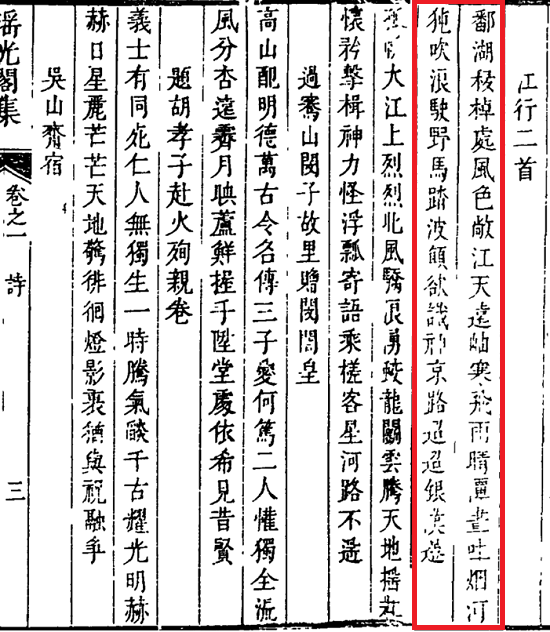 江行二首
鄱湖移棹處風色敞江天遠岫寒飛雨晴畫吐烟河
独吹浪駛野馬踏波顛欲識神京路迢迢銀漢邊
大江上烈烈北風驕浪勇蛟龍鬬雲騰天地摇
懷衿擊楫神力怪浮瓢寄語乘槎客星河路不遥
過騫山閔子故里贈閔誾皇
高山配明德萬古令名傳三子愛何篤二人懽獨全漸
風分杏遠霽月映蘆鮮握手陞堂處依希見昔賢
題胡孝子赴火殉親卷
義士有同死仁人無獨生一時騰氣燄千古耀光明赫
赫日星麗芒芒天地驚徘徊燈影裏猶與祝融爭
吳山齋宿
瑶光閣集
卷之一
詩
三